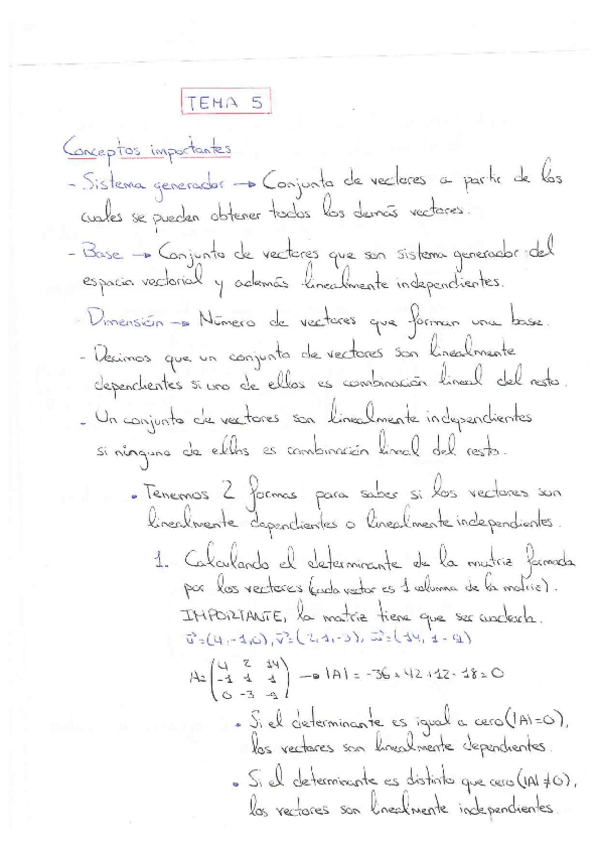 TEMA 5
Conceptos importantes
- Sistema generador → Conjunto de vectores a partir de los
cuales se pueden obtener todos los demás vectores.
- Base → Conjunto de vectores que son sistema generador del
espacio vectorial y además linealmente independientes.
- Dimensión → Número de vectores que forman una base.
- Decimos que un conjunto de vectores son linealmente
dependientes si uno de ellos es combinación lineal del resto.
- Un conjunto de vectores son linealmente independientes
si ninguno de ellos es combinación lineal del resto.
• Tenemos 2 formas para saber si los vectores son
linealmente dependientes o linealmente independientes.
1. Calculando el determinante de la matriz formada
por los vectores (cada vector es 1 columna de la matriz).
IMPORTANTE, la matriz tiene que ser cuadrada.
u⃗=(4,-1,0), v⃗=(2,1,-3), w⃗=(14,1,-9)
4 2 14
A= -1 1 1 → |A| = -36+42+12-18=0
0 -3 -9
• Si el determinante es igual a cero (|A|=0),
los vectores son linealmente dependientes.
• Si el determinante es distinto que cero (|A|≠0),
los vectores son linealmente independientes.